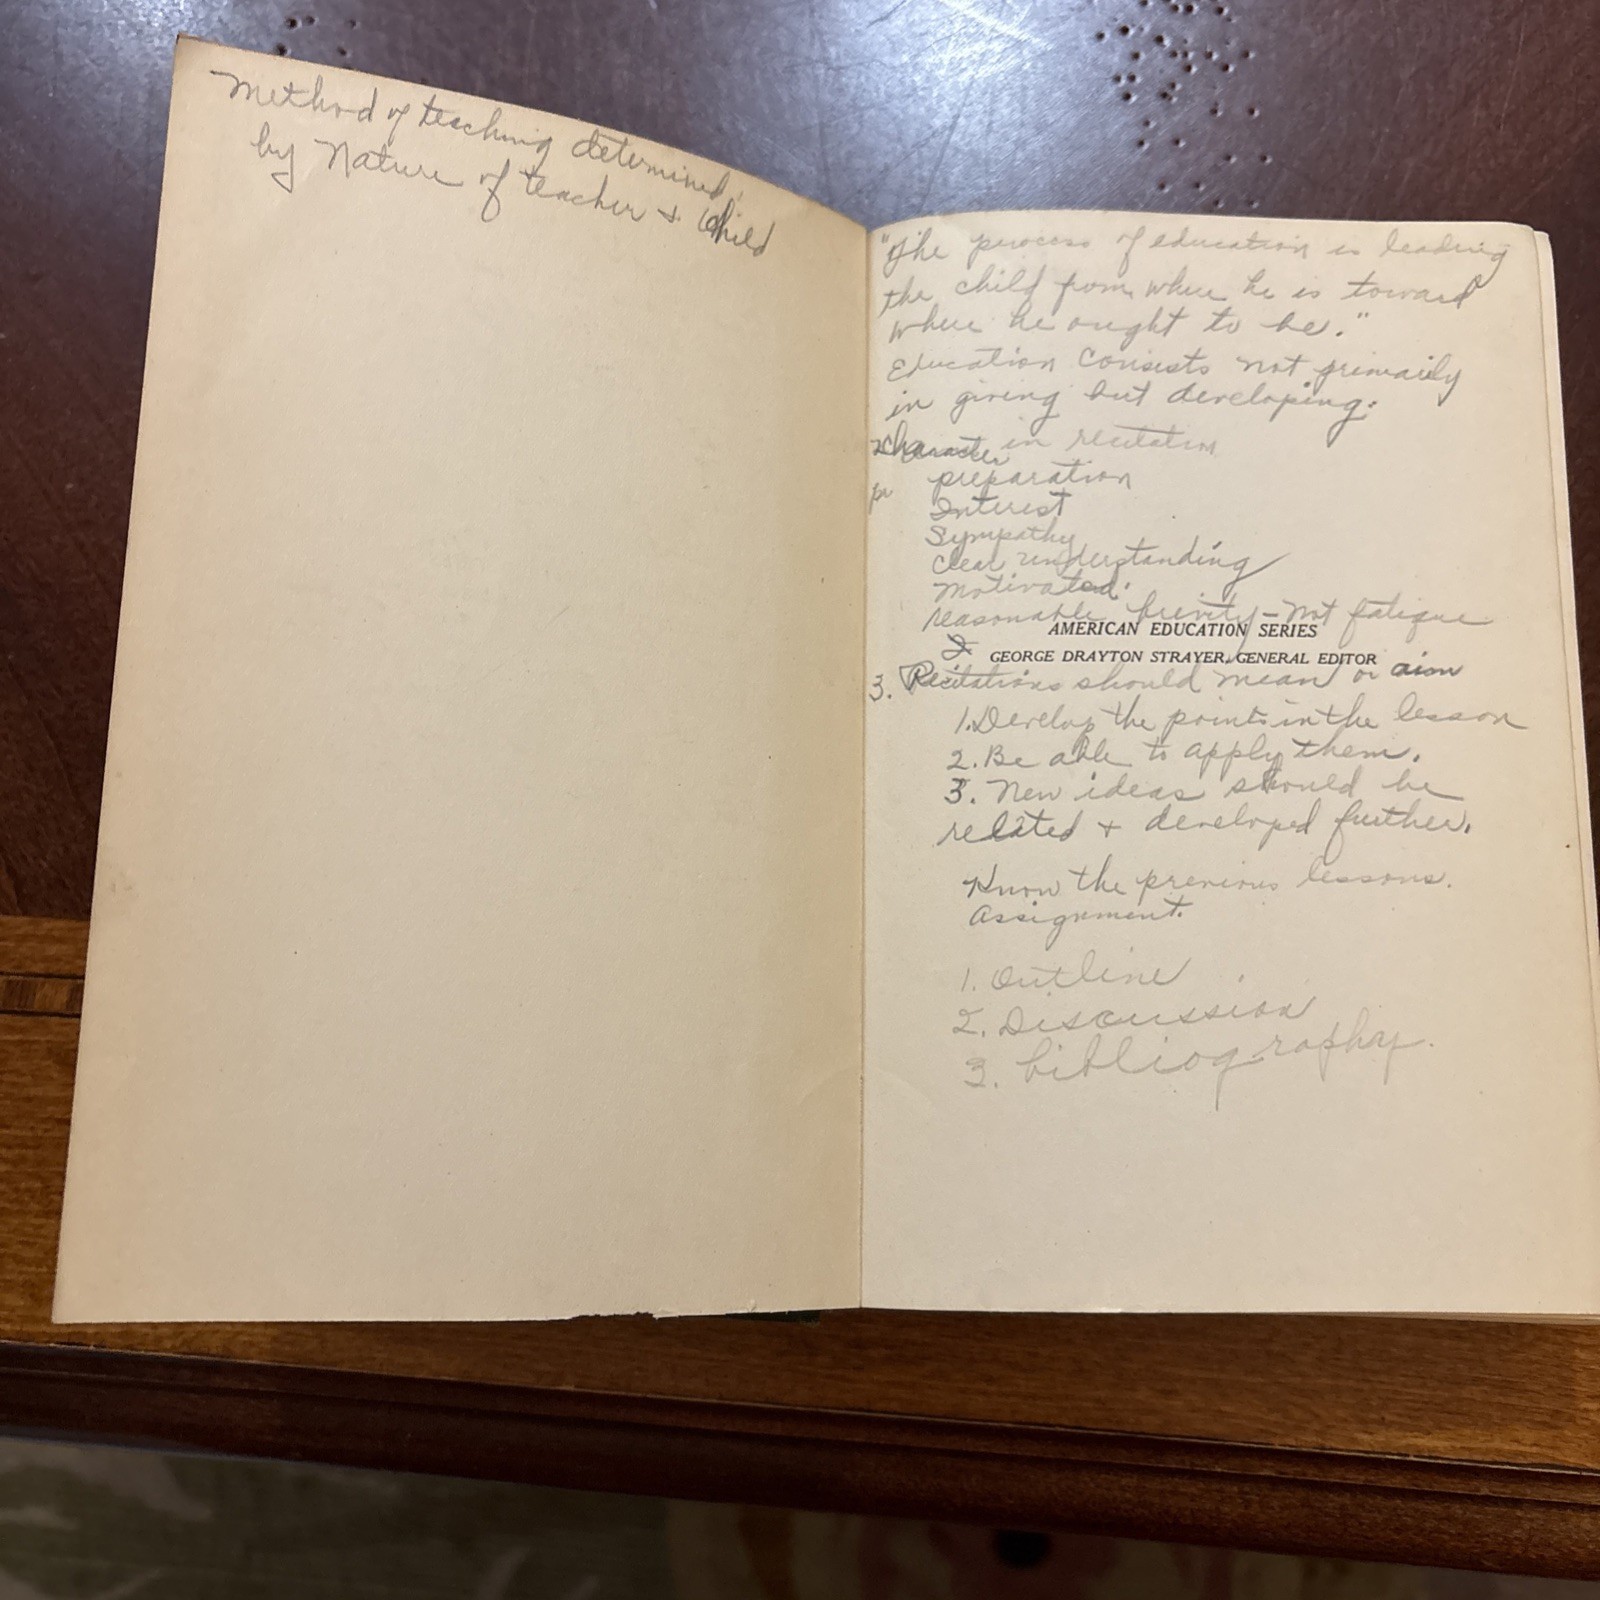 Method of teaching determined
by Nature of teacher + Child
"The process of education is leading
the child from where he is toward
where he ought to be."
Education consists not primarily
in giving but developing.
Character in recitation
preparation
pr
Interest
Sympathy
Clear understanding
Motivated.
reasonable brevity - not fatigue
AMERICAN EDUCATION SERIES
GEORGE DRAYTON STRAYER, GENERAL EDITOR
3. Recitations should mean or aim
1. Develop the points in the lesson
2. Be able to apply them.
3. New ideas should be
related + developed further.
Know the previous lessons.
Assignment.
1. Outline
2. Discussion
3. bibliography.